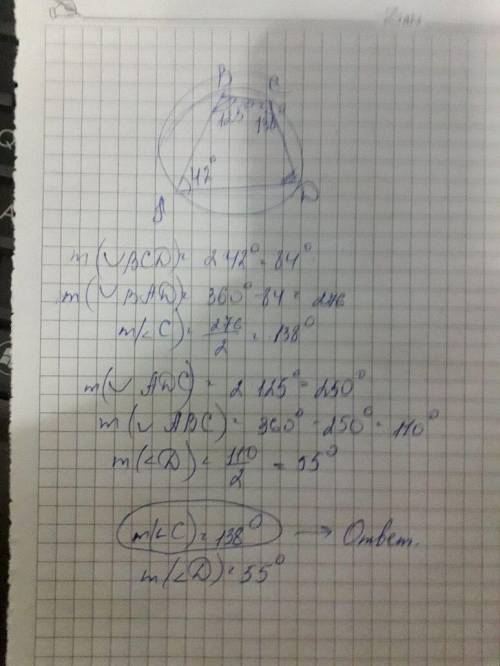 B C
125° 138°
42°
A D
m(∪BCD) = 2 42° = 84°
m(∪BAD) = 360° - 84 = 276
m(<C) = 276/2 = 138°
m(∪ADC) = 2 125° = 250°
m(∪ABC) = 360° - 250° = 110°
m(<D) = 110/2 = 55°
m(<C) = 138° → Ответ.
m(<D) = 55°